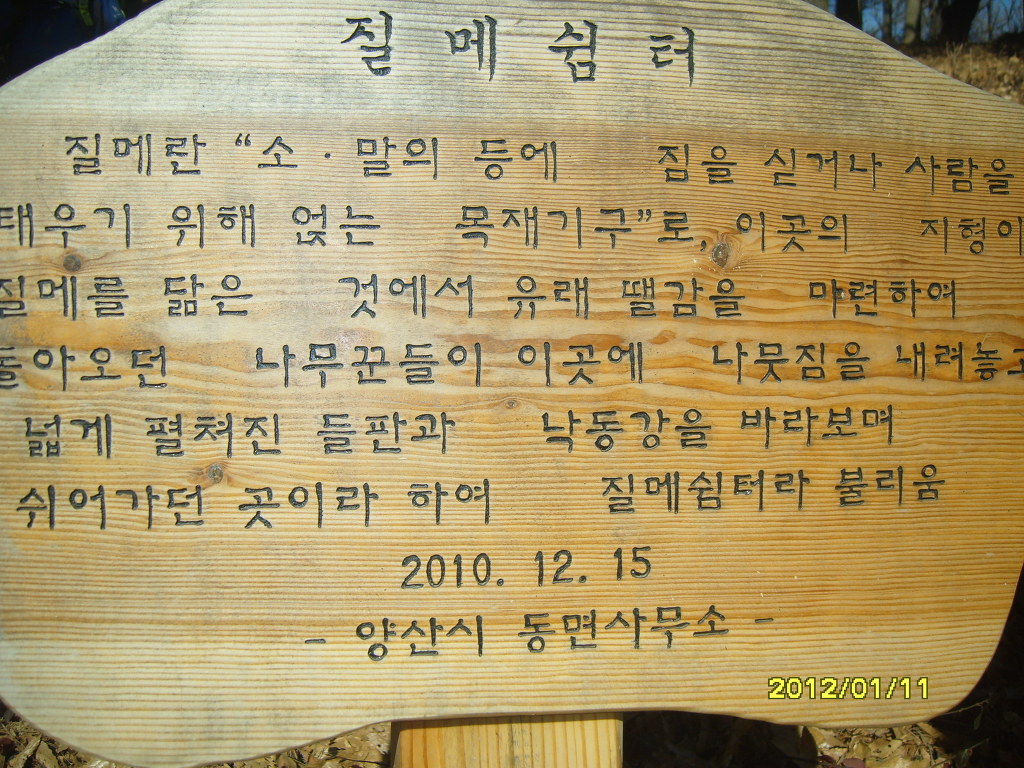 질메쉼터
질메란 “소 · 말의 등에 짐을 싣거나 사람을
태우기 위해 얹는 목재기구”로, 이곳의 지형이
질메를 닮은 것에서 유래 땔감을 마련하여
돌아오던 나무꾼들이 이곳에 나뭇짐을 내려놓고
넓게 펼쳐진 들판과 낙동강을 바라보며
쉬어가던 곳이라 하여 질메쉼터라 불리움
2010. 12. 15
- 양산시 동면사무소 -
2012/01/11